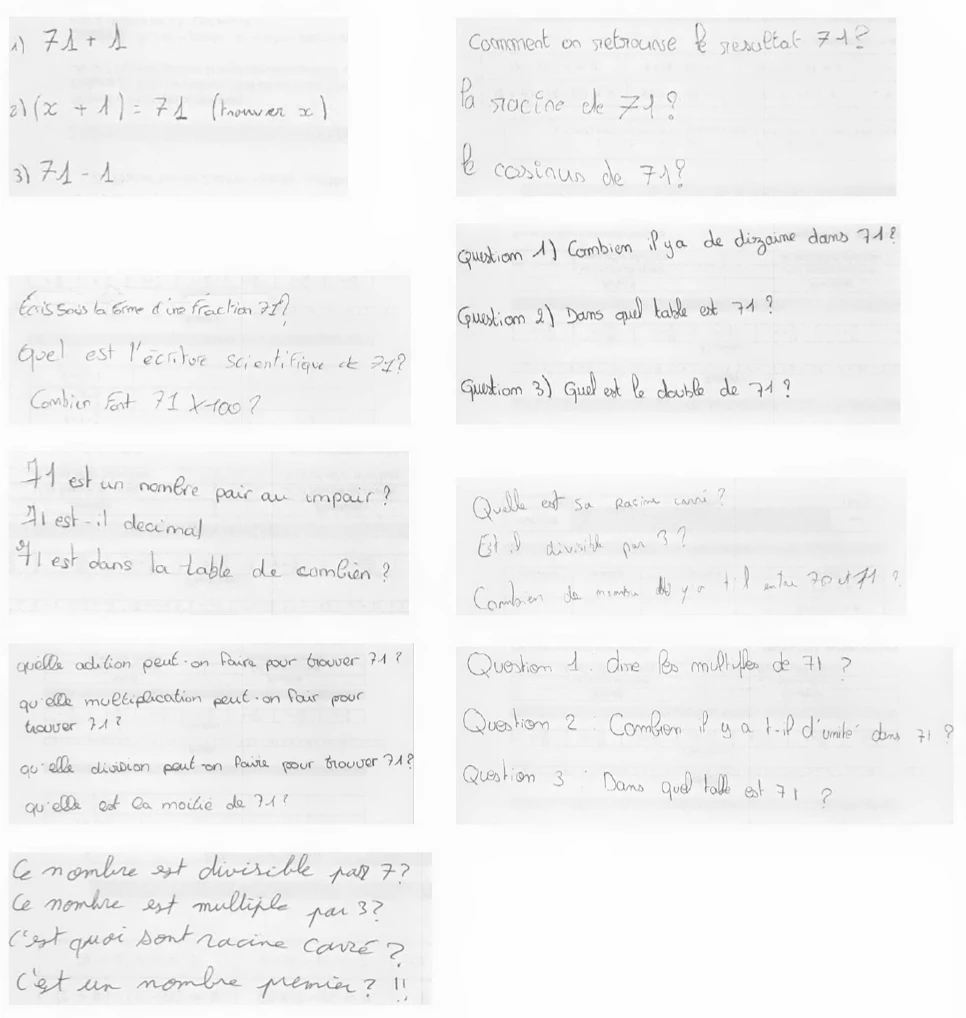 1) 71 + 1
2) (x + 1) = 71 (trouver x)
3) 71 - 1
Comment on retrouve le resultat 71?
la racine de 71?
le cosinus de 71?
Écris sous la forme d'une fraction 71?
Quel est l'écriture scientifique de 71?
Combien font 71 X 100?
Question 1) Combien il y a de dizaine dans 71?
Question 2) Dans quel table est 71?
Question 3) Quel est le double de 71?
71 est un nombre pair au impair?
71 est-il decimal
71 est dans la table de combien?
Quelle est sa Racine carré?
Est il divisible par 3?
Combien de nombre y a t il entre 70 et 71?
quelle adition peut-on faire pour trouver 71?
qu'elle multiplication peut-on fair pour
trouver 71?
qu'elle division peut-on faire pour trouver 71?
qu'elle est la moitié de 71?
Question 1 : dire les multiples de 71?
Question 2 : Combien il y a t-il d'unité dans 71?
Question 3 : Dans quel table est 71?
Ce nombre est divisible par 7?
Ce nombre est multiple par 3?
C'est quoi sont racine carré?
C'est un nombre premier? !!